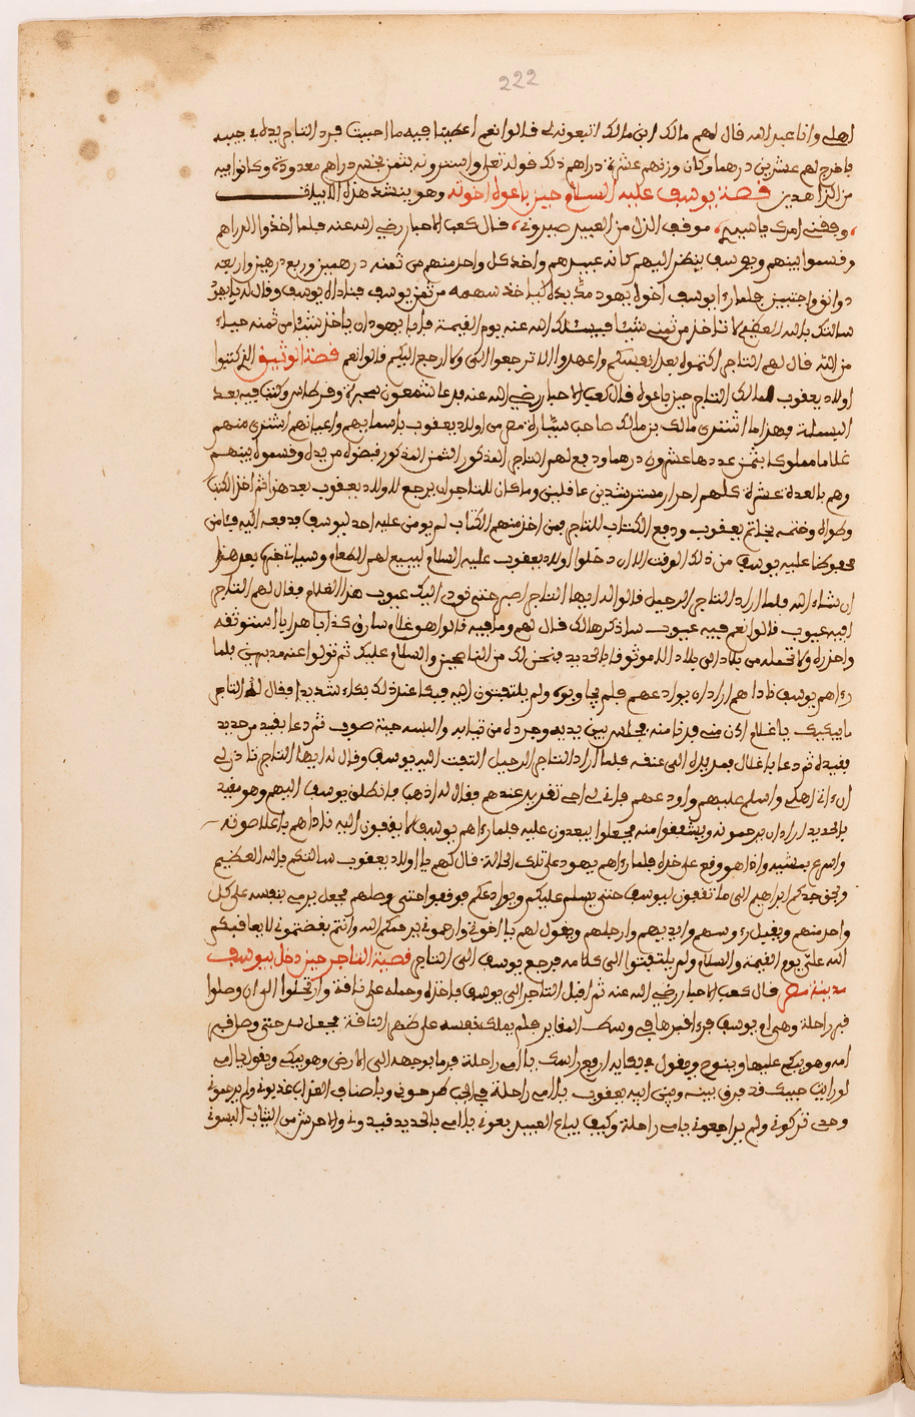 222
اهلي وانا عبد الله قال لهم مالك ابن مالك اتبعونه لي قالوا نعم اعطينا فيه ما احببت فرد التاجر يده في جيبه
فاخرج لهم عشرين درهما وكان وزنهم عشرة دراهم ذلك قوله تعلى وشروه بثمن بخس دراهم معدودة وكانوا فيه
من الزاهدين قصة يوسف عليه السلام حين باعوه اخوته وهو ينشد هذه الابيات
وقفني امرك يا سيدي موقف الذل من العبيد صبروني قال كعب الاحبار رضي الله عنه فلما اخذوا الدراهم
وقسموا بينهم ويوسف ينظر اليهم كانه عبدهم واخذ كل واحد منهم من ثمنه درهمين وربع درهم واربعة
دوانق وحبتين فلما رءا يوسف اخوه يهودا مد يده لياخذ سهمه من ثمن يوسف فناداه يوسف وقال له يا يهودا
سالتك بالله العظيم لا تاخذ من ثمني شيئا فيسئلك الله عنه يوم القيمة فابا يهودا ان ياخذ شيئا من ثمنه حياء
من الله قال لهم التاجر اكتموه بعد انفسكم واعهدوا الا ترجعوا الي ولا ارجع اليكم قالوا نعم قصة الوثيق الذي كتبوا
اولاد يعقوب لمالك التاجر حين باعوه قال كعب الاحبار رضي الله عنه فدعا شمعون بمحبرة وقرطاس وكتب فيه بعد
البسملة فهذا ما اشترى مالك بن مالك صاحب سيارة مصر من اولاد يعقوب باسمايهم واعيانهم اشترى منهم
غلاما مملوكا بثمن عددها عشرون درهما ودفع لهم التاجر المذكور الثمن المذكور قبضوه من يده وقسموه بينهم
وهم بالعدة عشرة كلهم احرار مسترشدين عاقلين وما كان للتاجر ان يرجع لاولاد يعقوب بعد هذا ثم اخذ الكتاب
وطواه وختمه بخاتم يعقوب ودفع الكتاب للتاجر فمن اخذ منهم الكتاب لم يومن عليه احد ليوسف فدفعه اليه فئامن
محفوظا عليه يوسف من ذلك الوقت الا ان دخلوا اولاد يعقوب عليه السلام ليبيع لهم الطعام وسياتي خبر بعد هذا
ان شاء الله فلما اراد التاجر الرحيل قالوا له ايها التاجر اصبر حتى نودي اليك عيوب هذا الغلام فقال لهم التاجر
افيه عيوب قالوا نعم فيه عيوب ساذكرها لك قال لهم وما فيه قالوا هو غلام سارق كذاب هراب استوثقه
واحذره ولا تحمله من بلاد الى بلاد الا موثوقا بالحديد فنحن لك من الناصحين والسلام عليك ثم تولوا عنه مدبرين فلما
رءاهم يوسف ناداهم اراد ان يوادعهم فلم يجاوبوه ولم يلتفتون اليه فبكا عند ذلك بكاء شديدا فقال له التاجر
ما يبكيك يا غلام ادن مني فدنا منه فجلس بين يديه وجرده من ثيابه والبسه جبة صوف ثم دعا بقيد من حديد
فقيده ثم دعا باغلال فمد يده الى عنقه فلما اراد التاجر الرحيل التفت اليه يوسف وقال له ايها التاجر تاذن لي
ان ءاتي اهلي واسلم عليهم واودعهم فقال له اذهب فانطلق يوسف اليهم وهو مقيد
بالحديد اراد ان يرحموه ويشفقوا منه فجعلوا يبعدون عليه فلما رءاهم يوسف لا يقفون اليه ناداهم باعلا صوته
واسرع بمشيه واذا هو وقع على خده فلما رءاهم يهودا على تلك الحالة قال لهم يا اولاد يعقوب سالتكم بالله العظيم
وبحق جدكم ابراهيم الى ما تقفون ليوسف حتى يسلم عليكم ويوادعكم فوقفوا حتى وصلهم فجعل يرمي بنفسه على كل
واحد منهم ويقبل رءوسهم وايديهم وارجلهم ويقول لهم يا اخوتي ارحموني يرحمكم الله وانتم بغضتموني لا يعاقبكم
الله علي يوم القيمة والسلام ولم يلتفتوا الى كلامه فرجع يوسف الى التاجر قصة التاجر حين دخل بيوسف
مدينة مصر قال كعب الاحبار رضي الله عنه ثم اقبل التاجر الى يوسف فاخذه وحمله على ناقة وارتحلوا الى ان وصلوا
قبر راحلة وهي ام يوسف فرءا قبرها في وسط المقابر فلم يملك نفسه على ظهر الناقة فجعل حتى وصل قبر
امه وهو يبكي عليها وينوح ويقول في بكايه ارفع راسك يا امي راحلة فرما بوجهه الى الارض وهو يبكي ويقول يا امي
لو رايت حبيبك قد فرق بينه وبين ابيه يعقوب يا امي راحلة في الجب طرحوني وباصناف العذاب عذبوني ولم يرحموني
وحدي تركوني ولم يراجعوني يا امي راحلة وكيف يباع العبيد بعوني يا امي بالحديد قيدوني والاحرش من الثياب البسوني